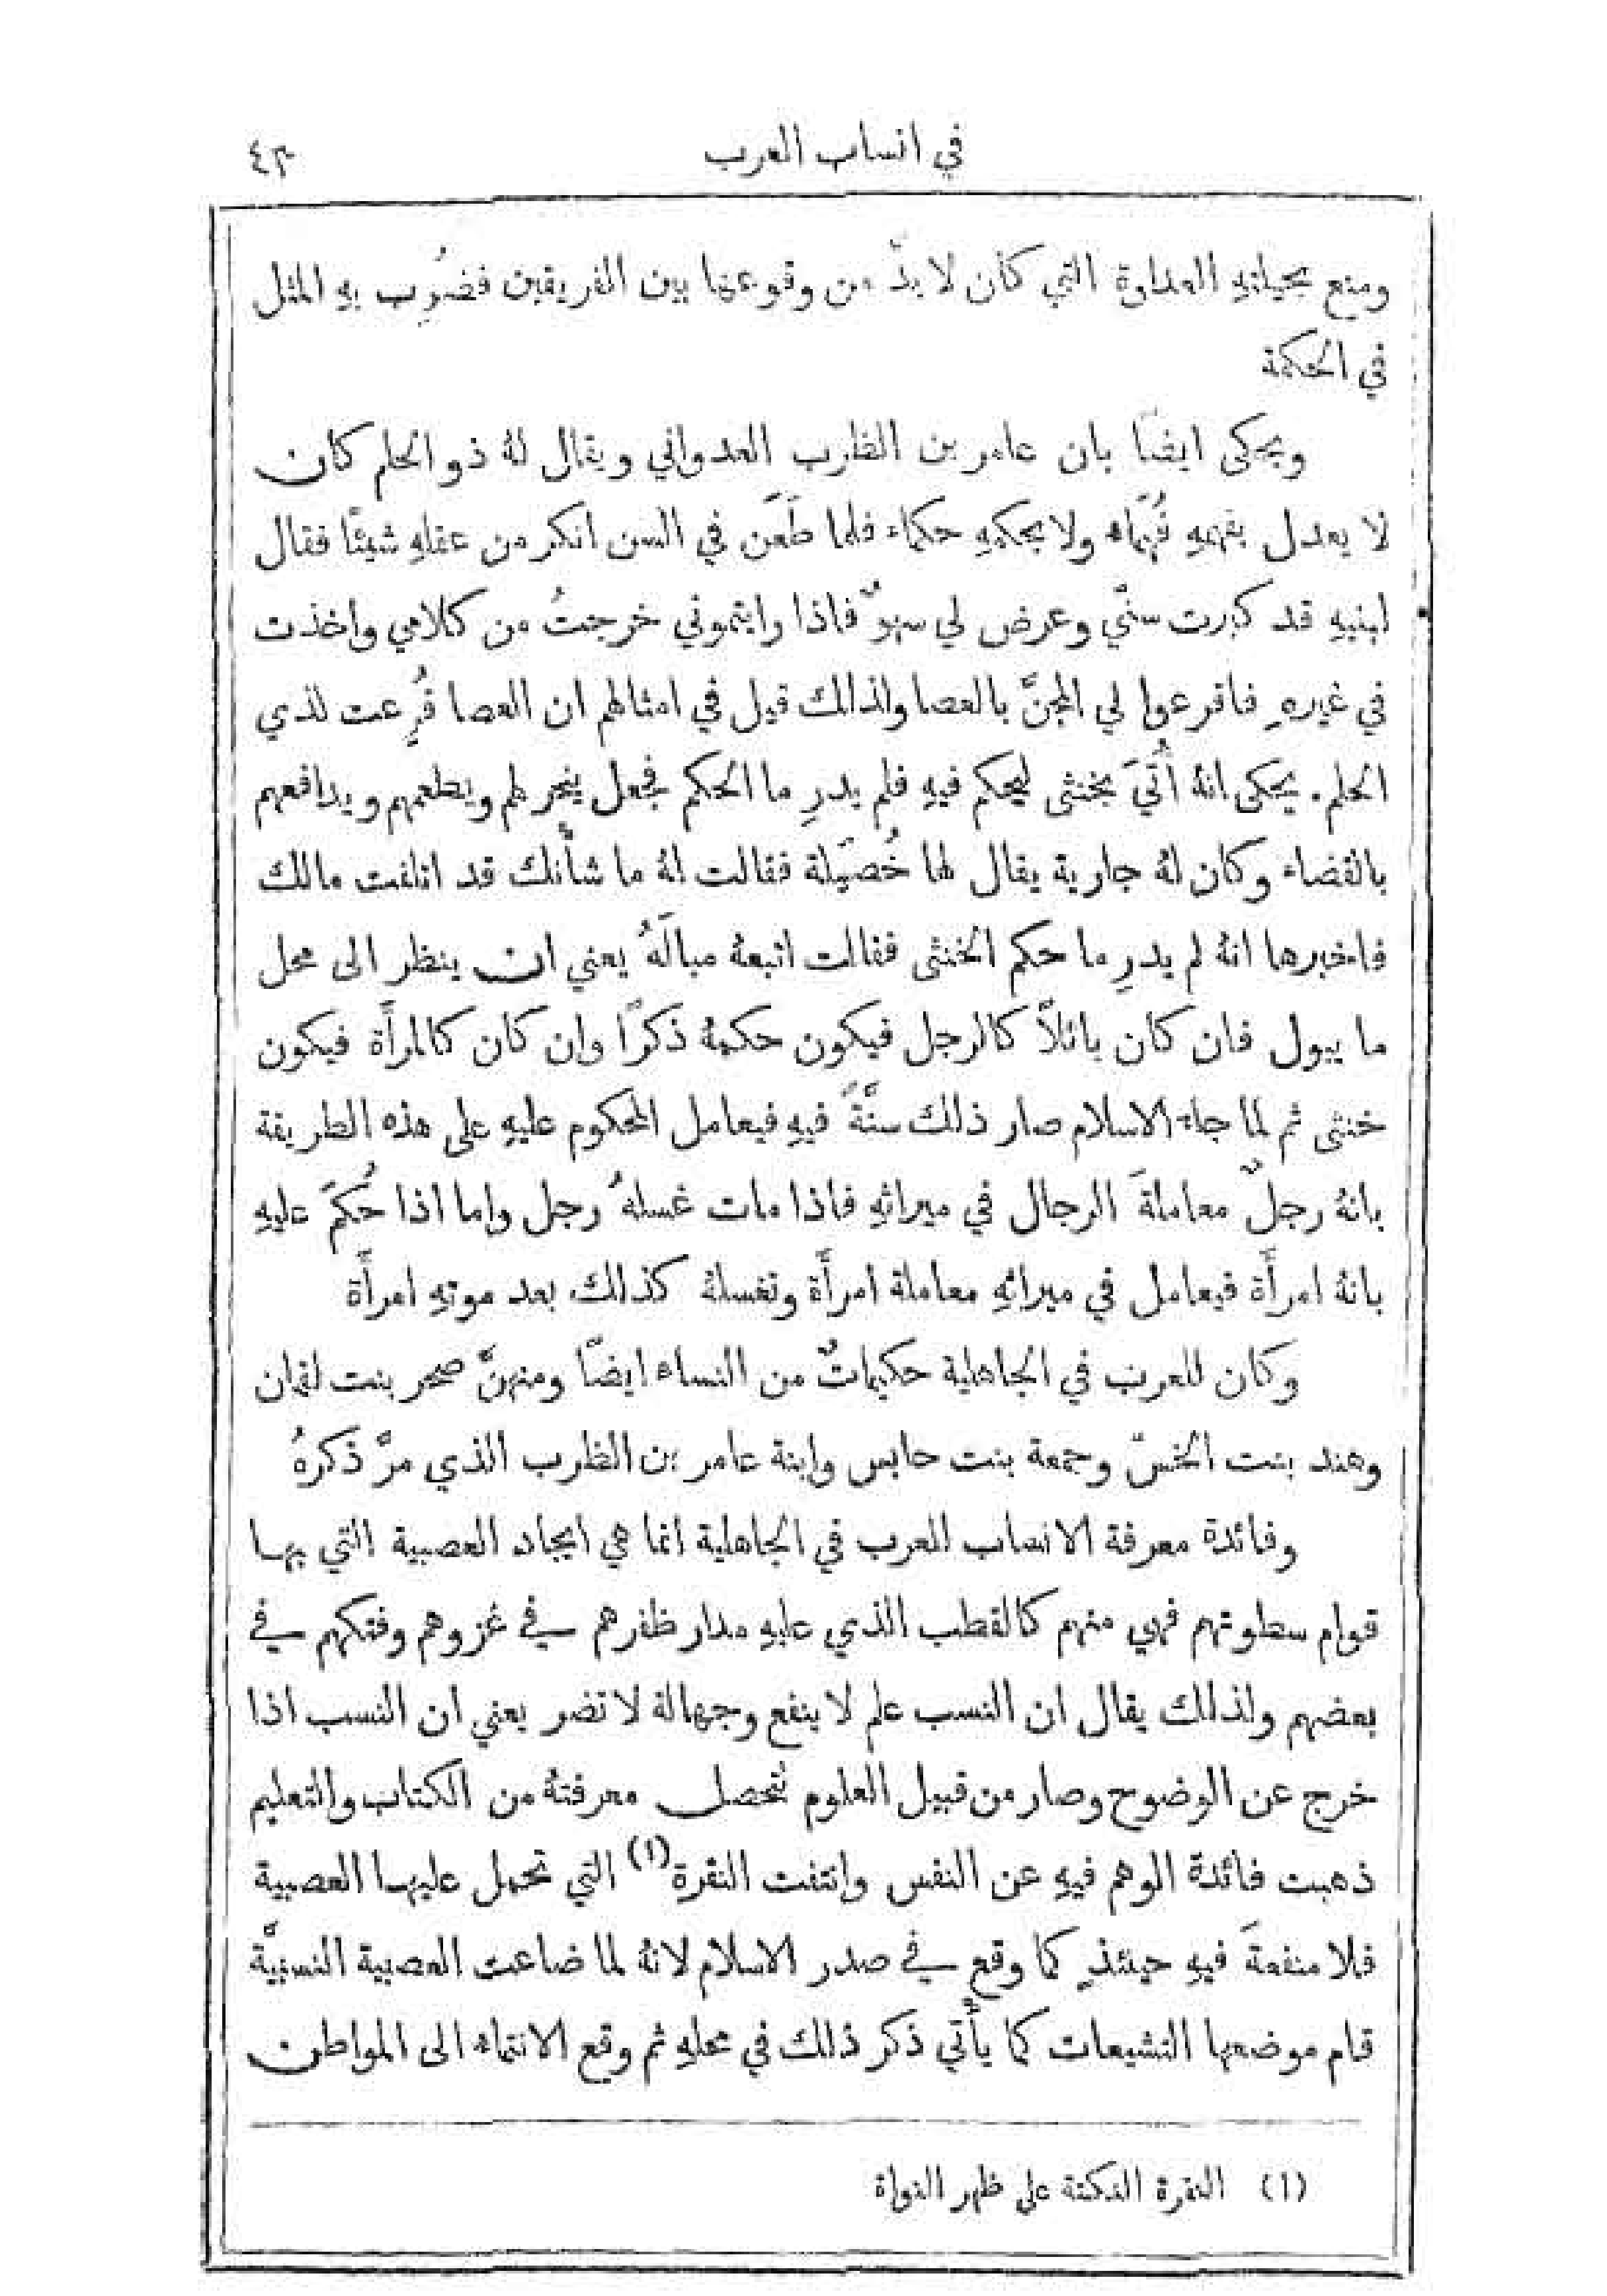 في انساب العرب
٤٣
ومنع بحيلتهِ العداوة التي كان لا بدَّ من وقوعها بين الفريقين فضُرِب بهِ المثل
في الحكمة
ويحكى ايضًا بان عامر بن الظرب العدواني ويقال لهُ ذو الحلم كان
لا يعدل بفهمهِ فُهَماء ولا بحكمهِ حكماء فلما طَعَن في السن انكر من عقلهِ شيئًا فقال
لبنيهِ قد كبرت سنّي وعرض لي سهوٌ فاذا رايتموني خرجتُ من كلامي واخذت
في غيرهِ فاقرعوا لي المجنَّ بالعصا ولذالك قيل في امثالهم ان العصا قُرِعت لذي
الحلم. يحكى انهُ أُتيَ بخنثى ليحكم فيهِ فلم يدرِ ما الحكم فجعل ينحر لهم ويطعمهم ويدافعهم
بالقضاء وكان لهُ جارية يقال لها خُصَيلة فقالت لهُ ما شأنك قد اتلفت مالك
فاخبرها انهُ لم يدرِ ما حكم الخنثى فقالت اتبعهُ مبالَهُ يعني ان ينظر الى محل
ما يبول فان كان بائلًا كالرجل فيكون حكمهُ ذكرًا وان كان كالمرأَة فيكون
خنثى ثم لما جاء الاسلام صار ذلك سنَّةً فيهِ فيعامل المحكوم عليهِ على هذه الطريقة
بانهُ رجلٌ معاملةَ الرجال في ميراثهِ فاذا مات غسلهُ رجل واما اذا حُكمَ عليهِ
بانهُ امرأَة فيعامل في ميراثهِ معاملة امرأَة وتغسلهُ كذلك بعد موتهِ امرأَة
وكان للعرب في الجاهلية حكيماتٌ من النساء ايضًا ومنهنَّ صحر بنت لقمان
وهند بنت الخسّ وجمعة بنت حابس وابنة عامر بن الظرب الذي مرَّ ذكرهُ
وفائدة معرفة الانساب للعرب في الجاهلية انما هي ايجاد العصبية التي بها
قوام سطوتهم فهي منهم كالقطب الذي عليهِ مدار ظفرهم في غزوهم وفتكهم في
بعضهم ولذلك يقال ان النسب علم لا ينفع وجهالة لا تضر يعني ان النسب اذا
خرج عن الوضوح وصار من قبيل العلوم تُحصل معرفتهُ من الكتاب والتعليم
ذهبت فائدة الوهم فيهِ عن النفس وانتفت النقرة(١) التي تحمل عليها العصبية
فلا منفعةَ فيهِ حينئذٍ كما وقع في صدر الاسلام لانهُ لما ضاعت العصبية النسبيَّة
قام موضعها التشيعات كما يأتي ذكر ذلك في محلهِ ثم وقع الانتماء الى المواطن
(١) النقرة النكتة على ظهر النواة